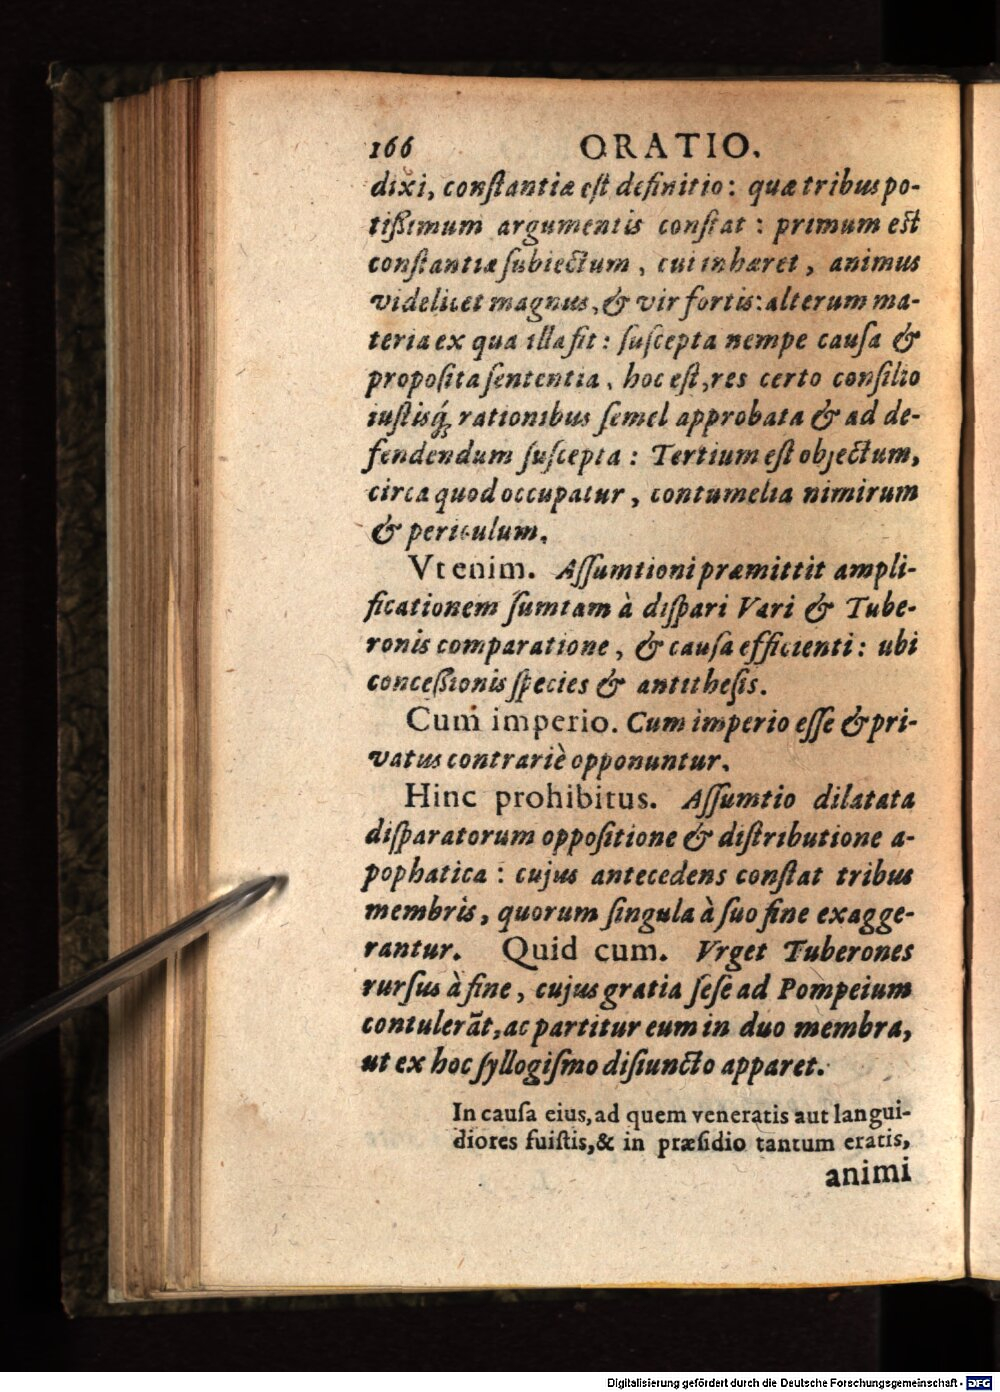 166 ORATIO.
dixi, constantiæ est definitio: quæ tribus po-
tißimum argumentis constat: primum est
constantiæ subiectum, cui inhæret, animus
videlicet magnus, & vir fortis: alterum ma-
teria ex qua illa fit: suscepta nempe causa &
proposita sententia, hoc est, res certo consilio
iustisq́ rationibus semel approbata & ad de-
fendendum suscepta: Tertium est objectum,
circa quod occupatur, contumelia nimirum
& periculum.
Vt enim. Assumtioni præmittit ampli-
ficationem sumtam à dispari Vari & Tube-
ronis comparatione, & causa efficienti: ubi
conceßionis species & antithesis.
Cum imperio. Cum imperio esse & pri-
vatus contrariè opponuntur.
Hinc prohibitus. Assumtio dilatata
disparatorum oppositione & distributione a-
pophatica: cujus antecedens constat tribus
membris, quorum singula à suo fine exagge-
rantur. Quid cum. Vrget Tuberones
rursus à fine, cujus gratia sese ad Pompeium
contulerāt, ac partitur eum in duo membra,
ut ex hoc syllogismo disiuncto apparet.
In causa eius, ad quem veneratis aut langui-
diores fuistis, & in præsidio tantum eratis,
animi
Digitalisierung gefördert durch die Deutsche Forschungsgemeinschaft - DFG